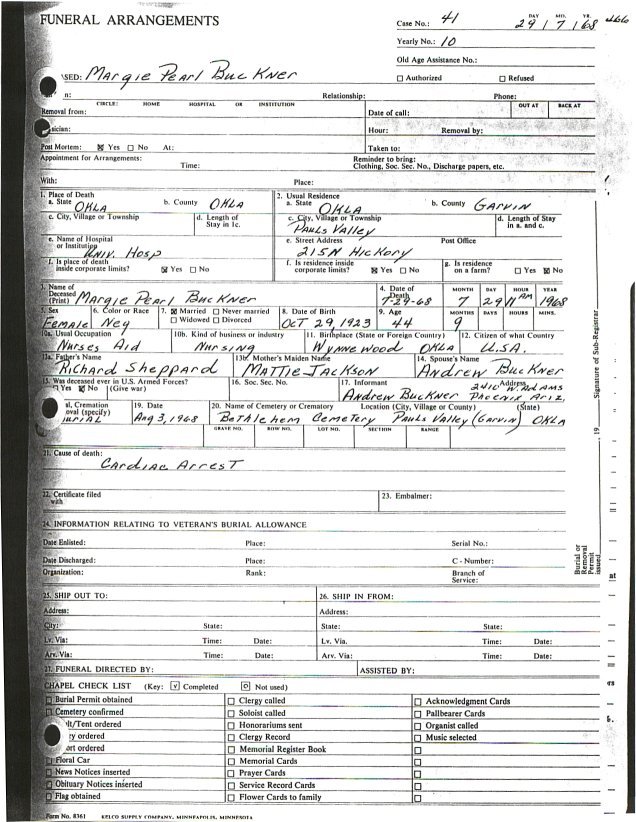 FUNERAL ARRANGEMENTS
Case No.: 41
DAY MO. YR.
29 / 7 / 68
Yearly No.: 10
Old Age Assistance No.:
SED: Margie Pearl Buckner
☐ Authorized ☐ Refused
n: Relationship: Phone:
CIRCLE: HOME HOSPITAL OR INSTITUTION
OUT AT BACK AT
Removal from: Date of call:
sician: Hour: Removal by:
Post Mortem: ☒ Yes ☐ No At: Taken to:
Appointment for Arrangements: Time:
Reminder to bring:
Clothing, Soc. Sec. No., Discharge papers, etc.
With: Place:
1. Place of Death
a. State OKLA b. County OKLA
2. Usual Residence
a. State OKLA b. County GARVIN
c. City, Village or Township d. Length of Stay in 1c.
c. City, Village or Township Pauls Valley d. Length of Stay in a. and c.
e. Name of Hospital or Institution Univ. Hosp
e. Street Address 215 N Hickory Post Office
f. Is place of death inside corporate limits? ☒ Yes ☐ No
f. Is residence inside corporate limits? ☒ Yes ☐ No
g. Is residence on a farm? ☐ Yes ☒ No
3. Name of Deceased (Print) Margie Pearl Buckner
4. Date of Death 7-29-68
MONTH DAY HOUR YEAR
7 29 11 AM 1968
5. Sex Female
6. Color or Race Neg
7. ☒ Married ☐ Never married
☐ Widowed ☐ Divorced
8. Date of Birth Oct 29, 1923
9. Age 44
MONTHS DAYS HOURS MINS.
9
10a. Usual Occupation Nurses Aid
10b. Kind of business or industry Nursing
11. Birthplace (State or Foreign Country) Wynnewood OKLA
12. Citizen of what Country U.S.A.
13a. Father's Name Richard Sheppard
13b. Mother's Maiden Name Mattie Jackson
14. Spouse's Name Andrew Buckner
15. Was deceased ever in U.S. Armed Forces?
☐ Yes ☒ No (Give war)
16. Soc. Sec. No.
17. Informant Andrew Buckner
Address 2410 W. Adams
Phoenix Ariz.
al, Cremation
oval (specify)
Burial
19. Date Aug 3, 1968
20. Name of Cemetery or Crematory Bethlehem Cemetery
Location (City, Village or County) (State)
Pauls Valley (Garvin) OKLA
GRAVE NO. ROW NO. LOT NO. SECTION RANGE
21. Cause of death:
Cardiac Arrest
22. Certificate filed with
23. Embalmer:
24. INFORMATION RELATING TO VETERAN'S BURIAL ALLOWANCE
Date Enlisted: Place: Serial No.:
Date Discharged: Place: C - Number:
Organization: Rank: Branch of Service:
25. SHIP OUT TO: 26. SHIP IN FROM:
Address: Address:
City: State: State: State:
Lv. Via: Time: Date: Lv. Via. Time: Date:
Arv. Via: Time: Date: Arv. Via: Time: Date:
27. FUNERAL DIRECTED BY: ASSISTED BY:
CHAPEL CHECK LIST (Key: √ Completed O Not used)
☐ Burial Permit obtained ☐ Clergy called ☐ Acknowledgment Cards
☐ Cemetery confirmed ☐ Soloist called ☐ Pallbearer Cards
ult/Tent ordered ☐ Honorariums sent ☐ Organist called
ry ordered ☐ Clergy Record ☐ Music selected
ort ordered ☐ Memorial Register Book ☐
☐ Floral Car ☐ Memorial Cards ☐
☐ News Notices inserted ☐ Prayer Cards ☐
☐ Obituary Notices inserted ☐ Service Record Cards ☐
☐ Flag obtained ☐ Flower Cards to family ☐
Form No. 8361 KELCO SUPPLY COMPANY, MINNEAPOLIS, MINNESOTA
Signature of Sub-Registrar
19
Burial or Removal Permit issued
at